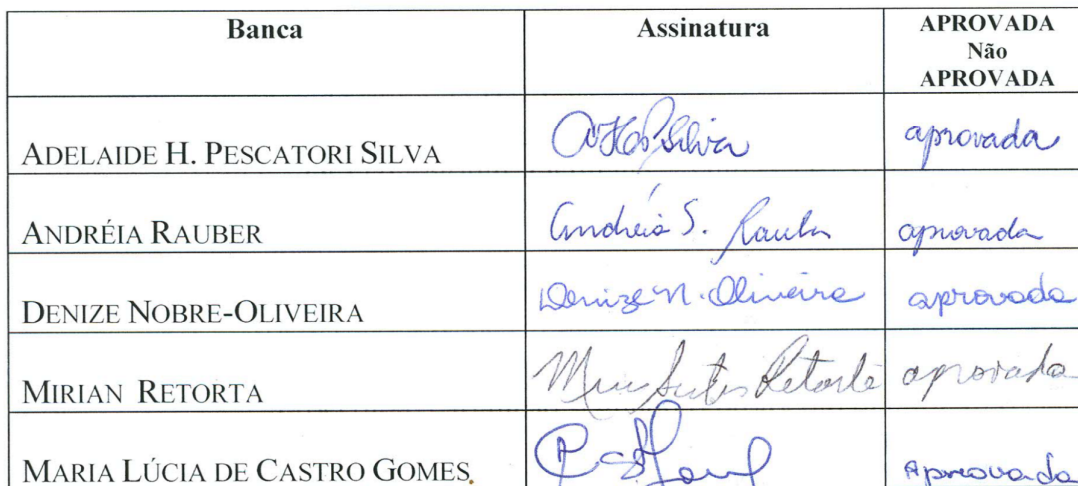 Banca Assinatura APROVADA
Não
APROVADA
ADELAIDE H. PESCATORI SILVA AHPSilva aprovada
ANDRÉIA RAUBER Andréia S. Rauber aprovada
DENIZE NOBRE-OLIVEIRA Denize N. Oliveira aprovada
MIRIAN RETORTA Retorta aprovada
MARIA LÚCIA DE CASTRO GOMES. Aprovada